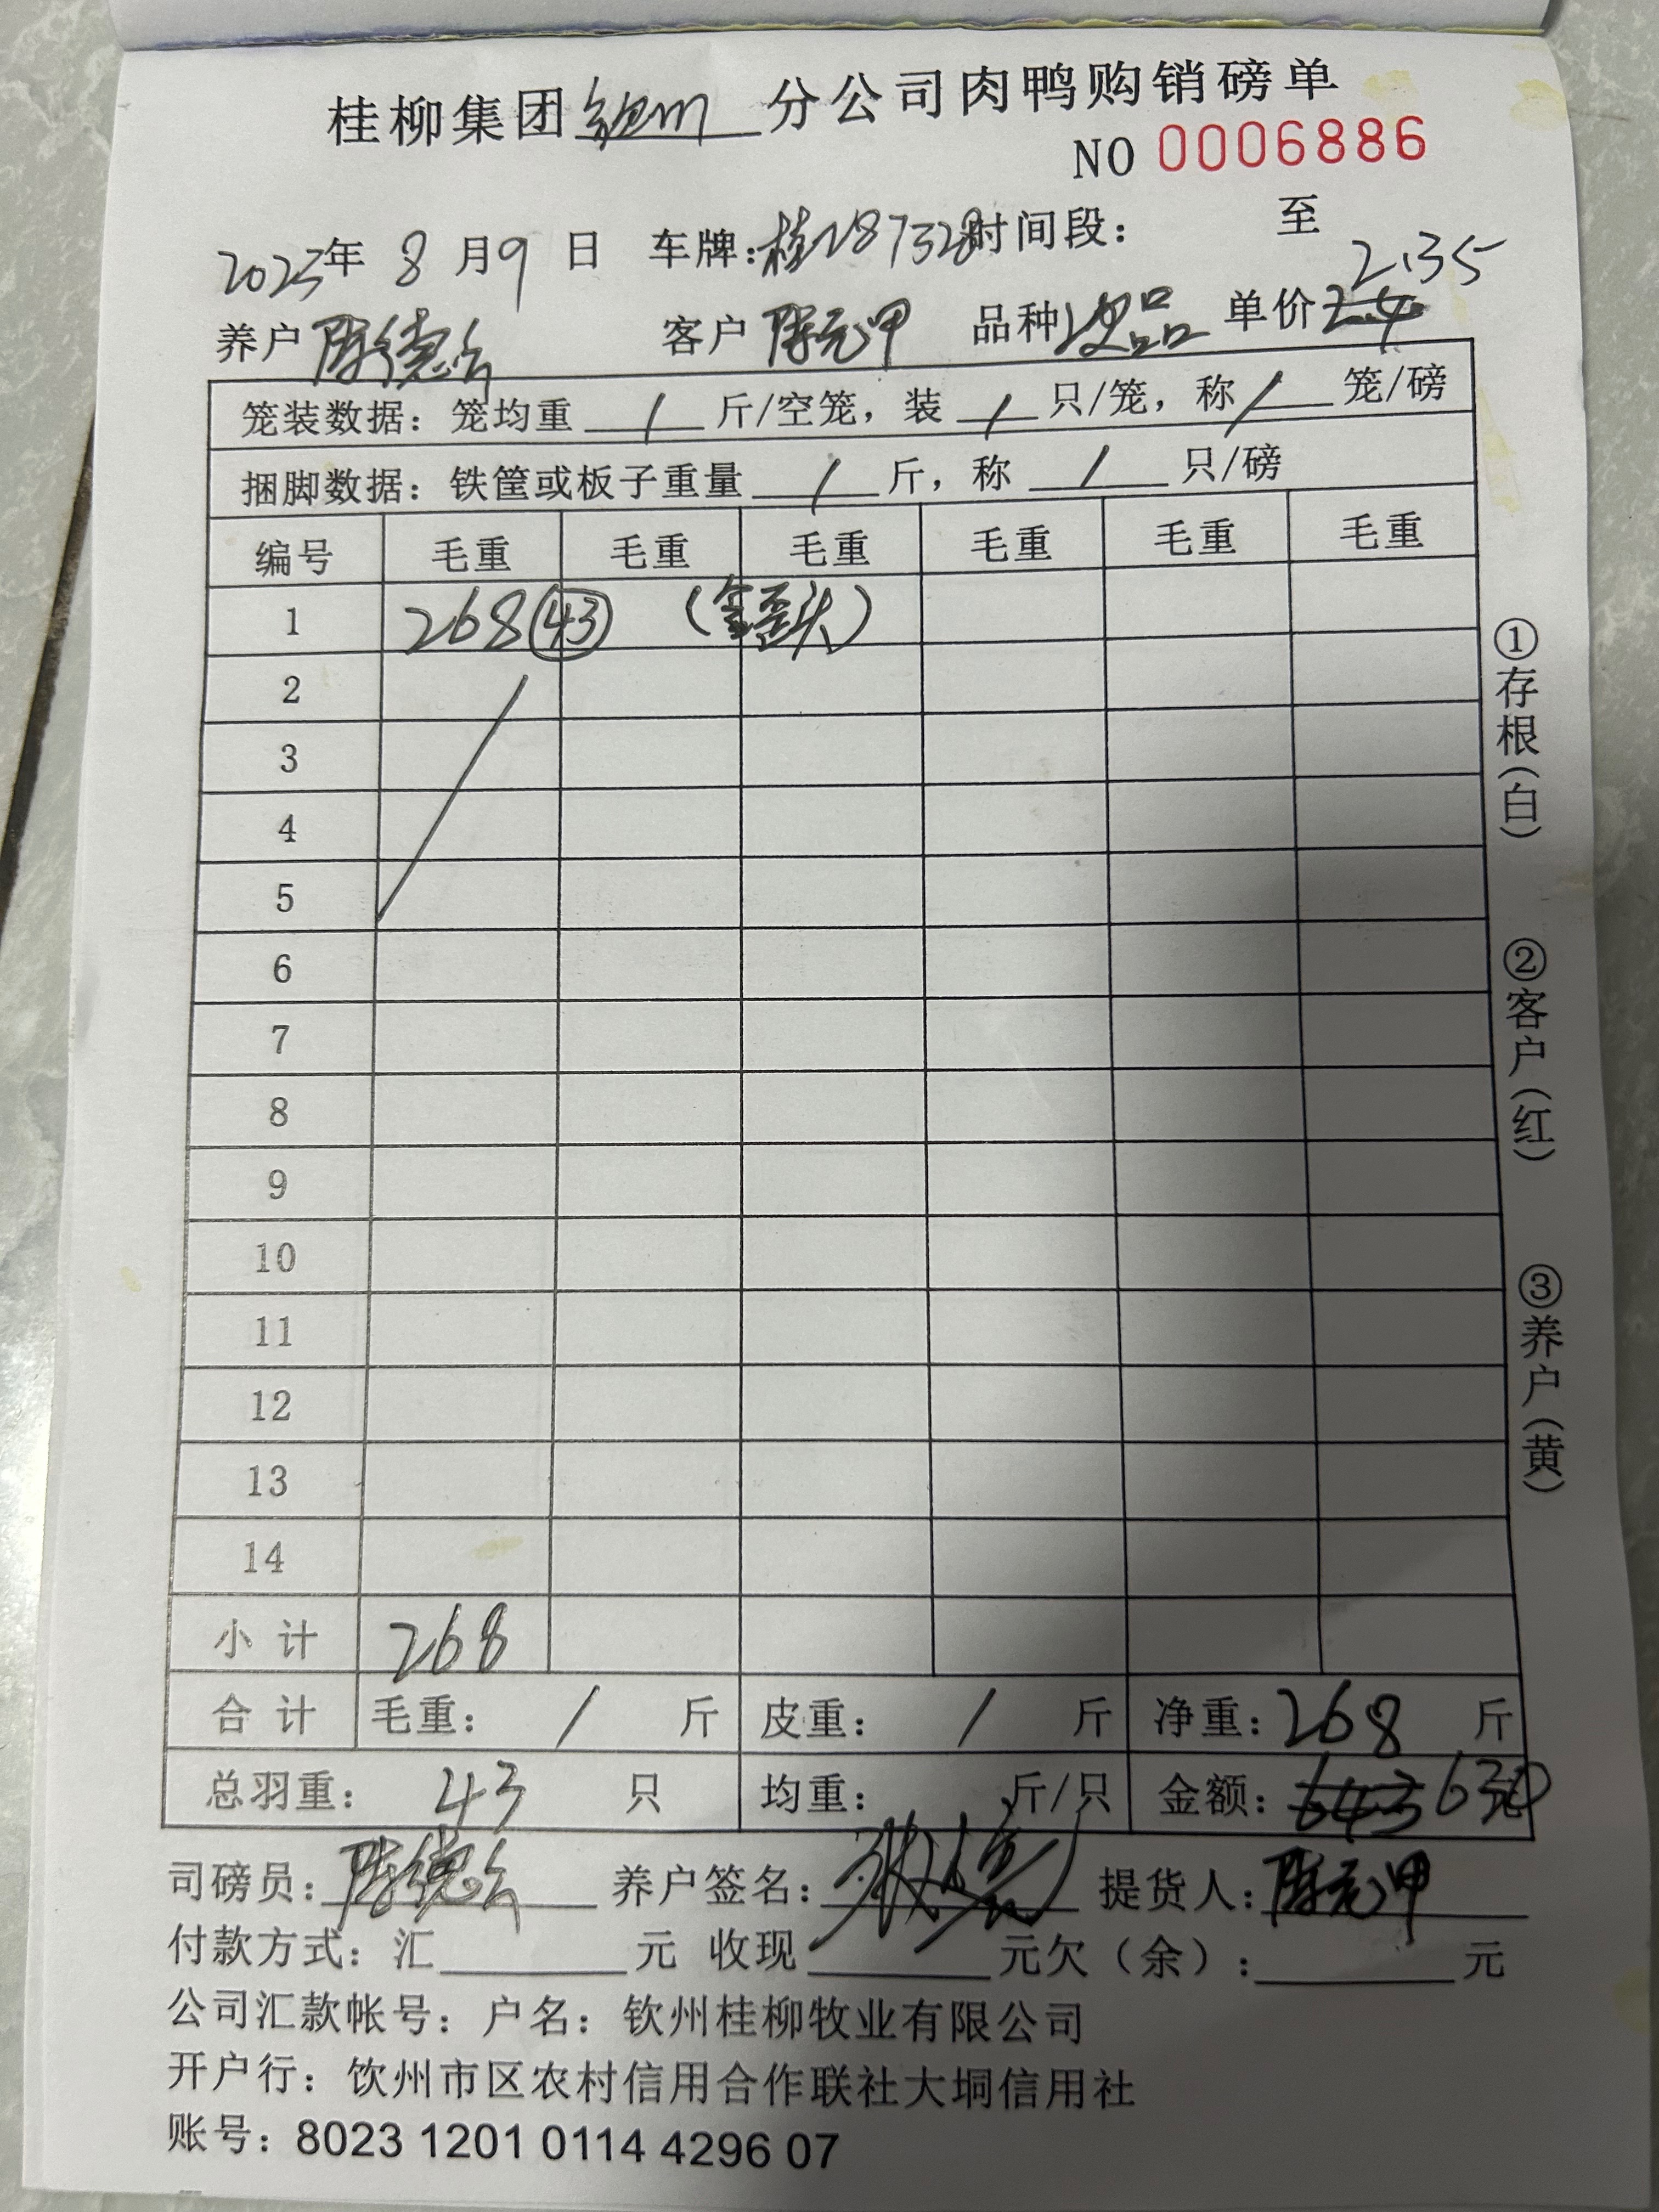 桂柳集团钦州分公司肉鸭购销磅单
NO 0006886
2023年 8 月 9 日 车牌:桂N87328时间段: 至
2.35
养户 陈德 客户 陈元甲 品种 次品 单价 2.4
笼装数据: 笼均重 / 斤/空笼, 装 / 只/笼, 称 / 笼/磅
捆脚数据: 铁筐或板子重量 / 斤, 称 / 只/磅
编号 毛重 毛重 毛重 毛重 毛重 毛重
1 268 43 (全歪头)
2
3
4
5
6
7
8
9
10
11
12
13
14
小 计 268
合 计 毛重: / 斤 皮重: / 斤 净重: 268 斤
总羽重: 43 只 均重: 斤/只 金额: 643 630 元
司磅员: 陈德 养户签名: 提货人: 陈元甲
付款方式: 汇 元 收现 元欠(余): 元
公司汇款帐号: 户名: 钦州桂柳牧业有限公司
开户行: 钦州市区农村信用合作联社大垌信用社
账号: 8023 1201 0114 4296 07
①存根(白)
②客户(红)
③养户(黄)